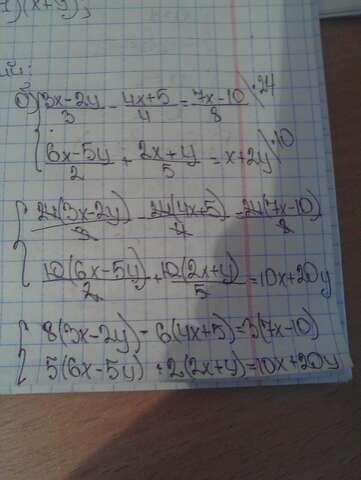 )(x+y);
б) (3x-2y)/3 - (4x+5)/4 = (7x-10)/8 \ ·24
(6x-5y)/2 + (2x+y)/5 = x+2y \ ·10
24(3x-2y)/3 - 24(4x+5)/4 = 24(7x-10)/8
10(6x-5y)/2 + 10(2x+y)/5 = 10x+20y
8(3x-2y)-6(4x+5)=3(7x-10)
5(6x-5y)+2(2x+y)=10x+20y